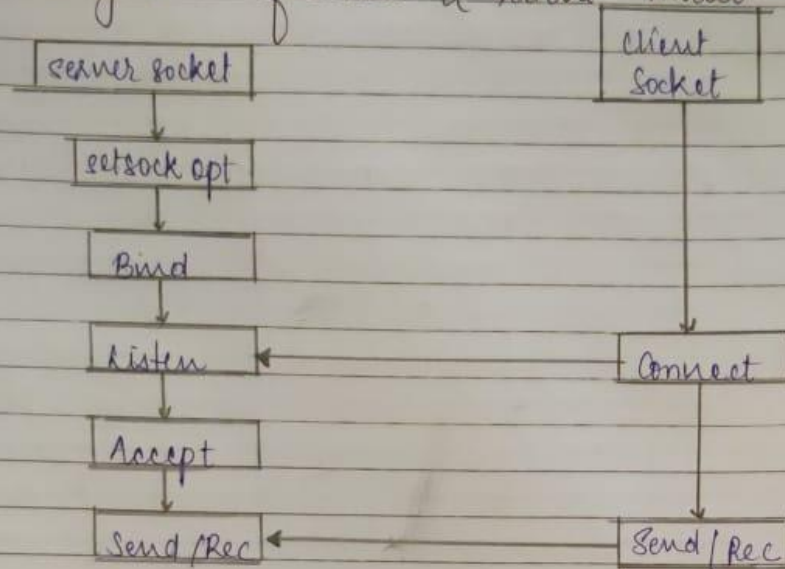 server socket
setsock opt
Bind
Listen
Accept
Send/Rec
client
Socket
Connect
Send/Rec